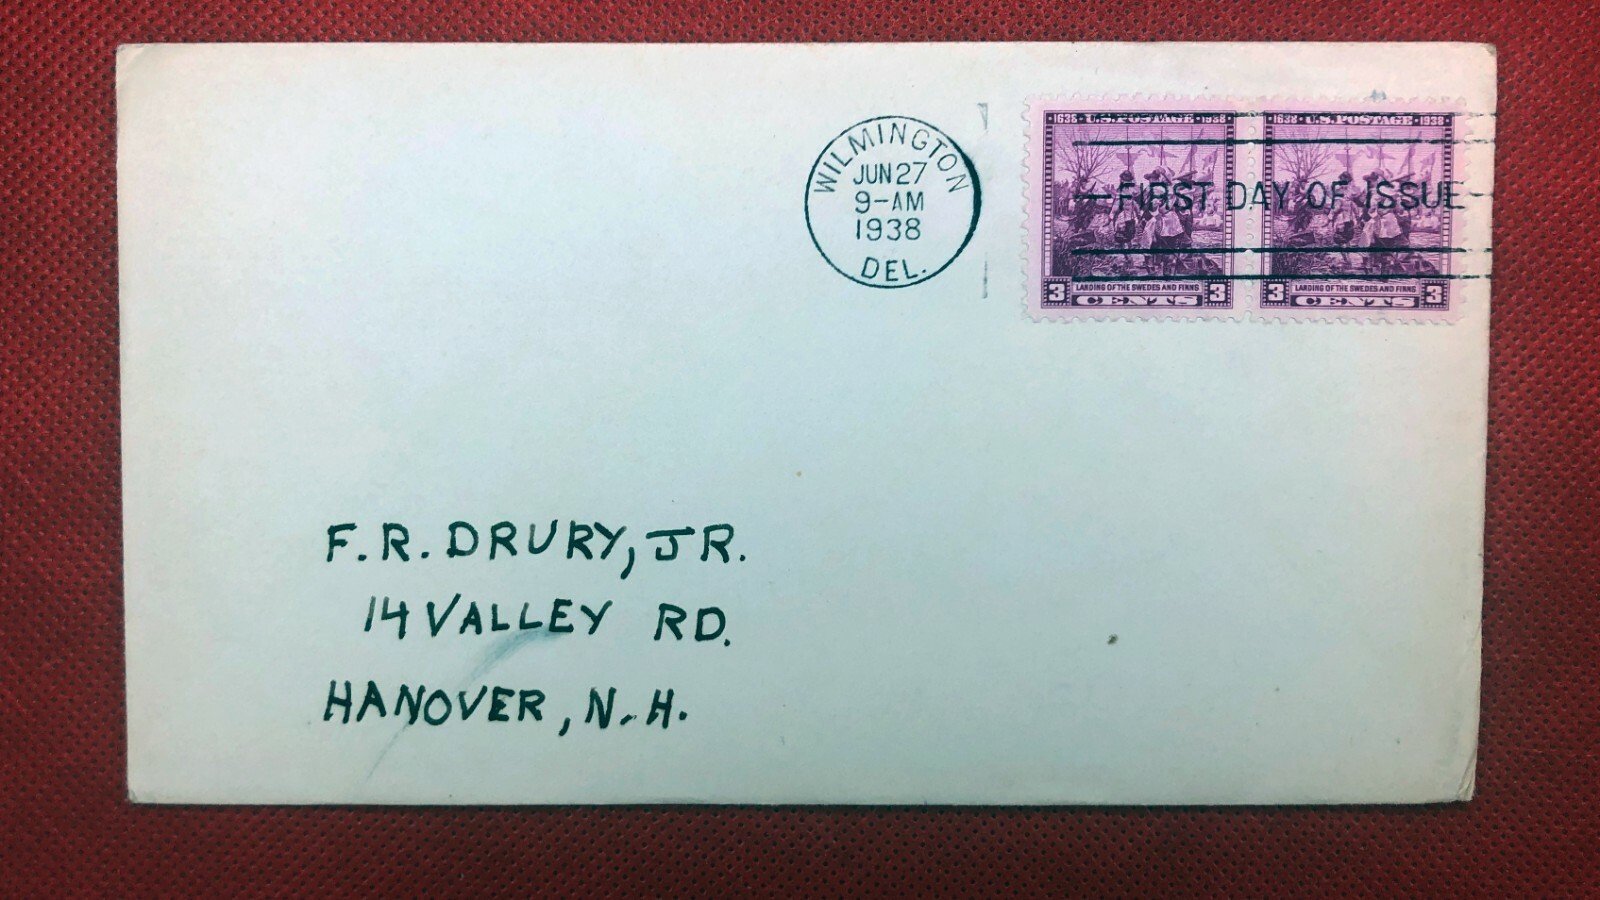 WILMINGTON
JUN 27
9-AM
1938
DEL.
1638 U.S. POSTAGE 1938
1638 U.S. POSTAGE 1938
FIRST DAY OF ISSUE
LANDING OF THE SWEDES AND FINNS
3 CENTS 3
LANDING OF THE SWEDES AND FINNS
3 CENTS 3
F. R. DRURY, JR.
14 VALLEY RD.
HANOVER, N. H.